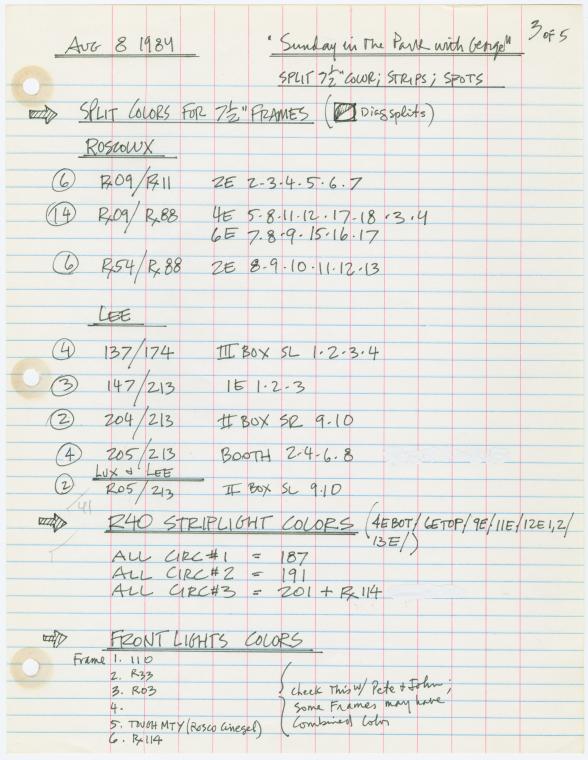 3 of 5
AUG 8 1984 "Sunday in The Park with George"
SPLIT 7½" COLOR; STRIPS; SPOTS
SPLIT COLORS FOR 7½" FRAMES ( Diag splits)
ROSCOLUX
6 Rx09/Rx11 2E 2·3·4·5·6·7
14 Rx09/Rx88 4E 5·8·11·12·17·18·3·4
6E 7·8·9·15·16·17
6 Rx54/Rx88 2E 8·9·10·11·12·13
LEE
4 137/174 III BOX SL 1·2·3·4
3 147/213 1E 1·2·3
2 204/213 II BOX SR 9·10
4 205/213 BOOTH 2·4·6·8
LUX & LEE
2 R05/213 II BOX SL 9·10
41
R40 STRIPLIGHT COLORS (4EBOT/6ETOP/9E/11E/12E1,2/
13E/)
ALL CIRC#1 = 187
ALL CIRC#2 = 191
ALL CIRC#3 = 201 + Rx114
FRONT LIGHTS COLORS
Frame 1. 110
2. R33
3. R03 Check This w/ Pete & John;
4. some Frames may have
5. TOUGH MTY (Rosco Cinegel) Combined Color
6. Rx114